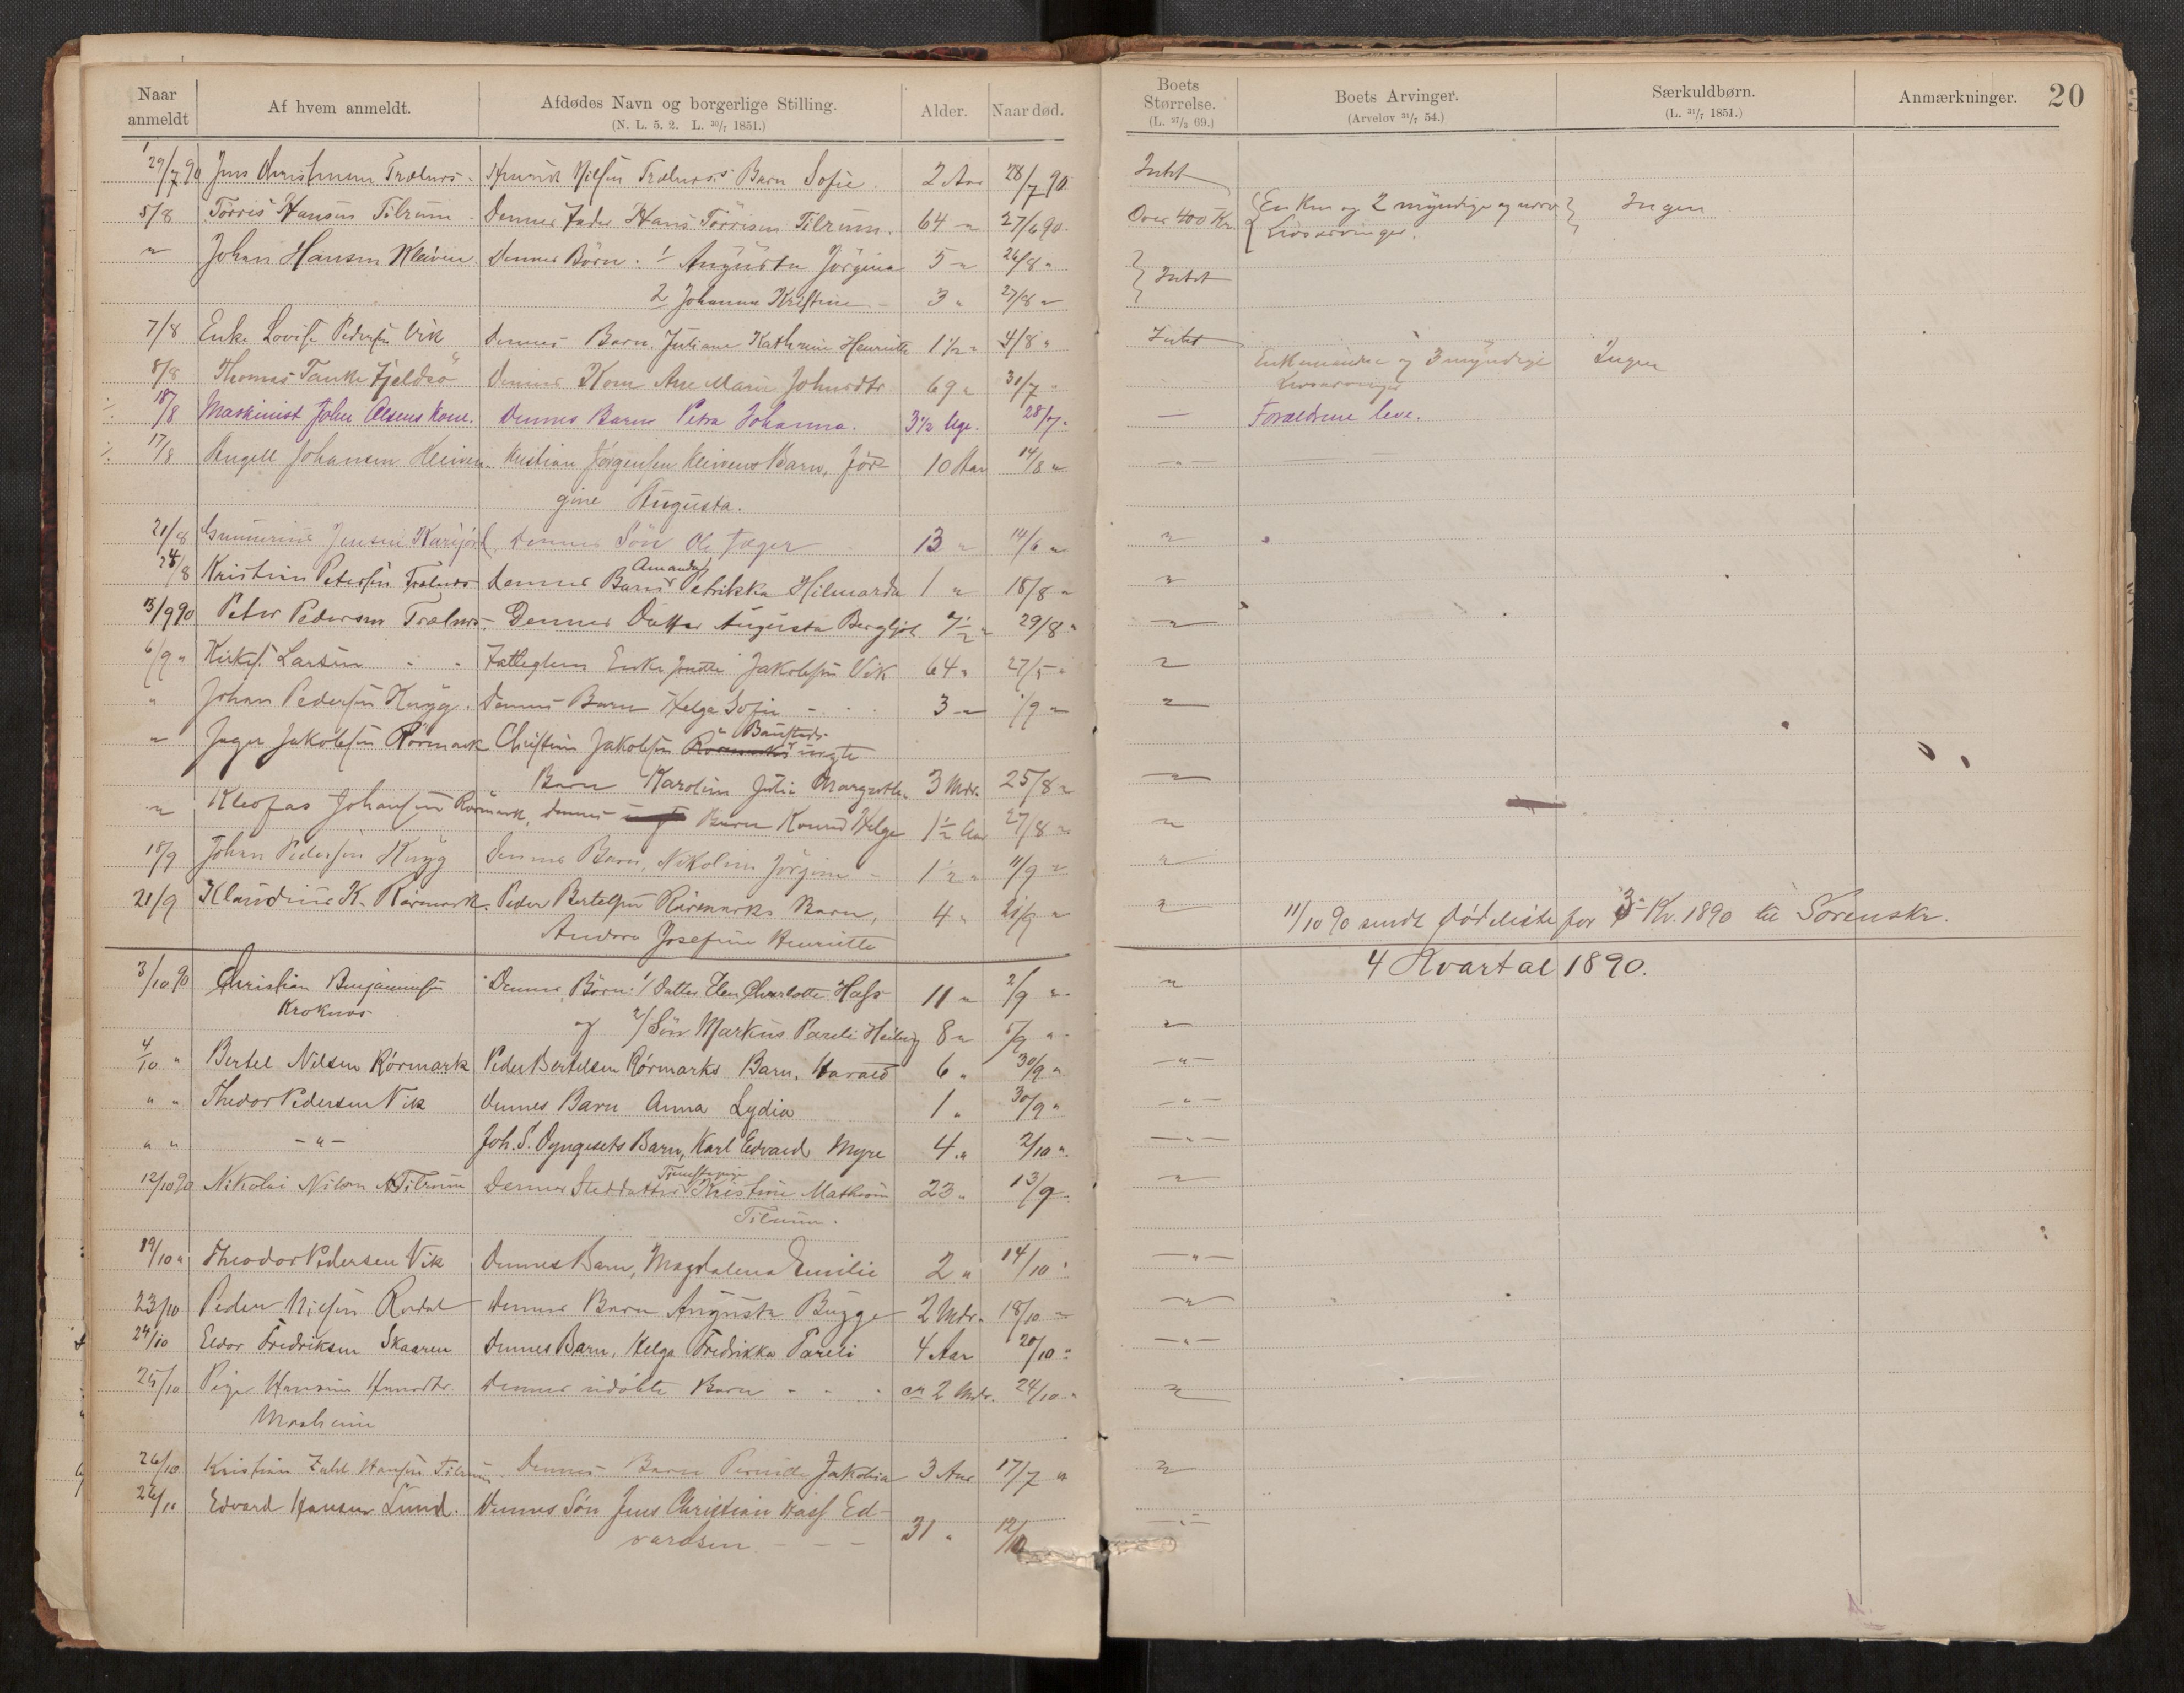 Naar anmeldt
Af hvem anmeldt.
Afdødes Navn og borgerlige Stilling.
(N. L. 5. 2. L. 30/7 1851.)
Alder.
Naar død.
Boets Størrelse.
(L. 27/3 69.)
Boets Arvinger.
(Arvelov 31/7 54.)
Særkuldbørn.
(L. 31/7 1851.)
Anmærkninger.
20
29/7 90 Jens Christensen Trælnes. Henrik Nilsen Trælness Barn Sofie. 2 Aar 28/7 90 Intet
5/8 Törris Hansen Tilrum. Dennes Fader Hans Törrisen Tilrum. 64 " 27/6 90. Over 400 Kr. Enken og 2 myndige Ingen
Livsarvinger.
" Johan Hansen Kleiven Dennes Börn: 1/ Augusta Jörgina 5 " 26/8 " Intet
2 Johanna Kristine 3 " 27/8 "
7/8 Enke Lovise Pedersen Vik Dennes Barn Juliane Kathrine Henriette 1 1/2 " 4/8 " Intet
8/8 Thomas Tanke Fjeldsö Dennes Kone Ane Marie Johnsdtr 69 " 31/7 " Enkemanden og 3 myndige Ingen
Livsarvinger
18/8 Maskinist John Olsens Kone. Dennes Barn Petra Johanna. 3 1/2 Uge. 28/7. — Forældrene leve.
17/8 Angell Johansen Kleiven. Kristian Jörgensen Kleivens Barn, Jör- 10 Aar 14/8 " — " —
gine Augusta.
21/8 Jensen Dennes Sön Ole Jæger 13 " 14/6 " "
24/8 Kristian Petersen Trælnes Dennes Barn Amanda Petrikka Hilmarda 1 " 18/8 " "
3/9 90 Peter Pedersen Trælnes. Dennes Datter Augusta Bergljot 7 1/2 " 29/8 " "
6/9 " Kirkes. Larsen Fattiglem Enke Jakobsen Vik 64 " 27/5 " "
" Johan Pedersen Hugg. Dennes Barn Helga Sofie 3 " 1/9 " "
" Jakobsen Rörmark Christine Jakobsen Rörmarks Baustads uægte
Barn Karoline Julie Margrethe 3 Mdr. 25/8 " "
" Kleofas Johansen Rörmark, Dennes uægte Barn Konrad Helge 1 1/2 Aar 27/8 " "
18/9 Johan Pedersen Hugg Dennes Barn, Nikoline Jörgine 1 1/2 " 11/9 " "
21/9 Klaudius K. Rörmark. Peder Bertelsen Rörmarks Barn, 4 " 21/9 " "
Andora Josefine Henriette
11/10 90 sendt Dødsliste for 3 Kv. 1890 til Sorenskr.
4 Kvartal 1890.
3/10 90 Christian Benjaminsen Dennes Börn: 1/ Datter Elen Charlotte Hass 11 " 2/9 " "
Kroknes og 2/ Sön Markus Pareli Hedvig 8 " 5/9 " "
4/10 " Bertel Nilsen Rörmark Peder Bertelsen Rörmarks Barn, Harald 6 " 30/9 " — " —
" " Thedor Pedersen Vik Dennes Barn Anna Lydia 1 " 30/9 " — " —
" " — " — Joh. S. Dyngesets Barn, Karl Edvard Myre 4 " 2/10 " — " —
12/10 90 Nikolai Nilsen Tilrum Dennes Steddatter Tjenestepige Kristine Mathea 23 " 13/9 "
Tilrum.
19/10 " Theodor Pedersen Vik Dennes Barn, Magdalena Emilie 2 " 14/10 " — " —
23/10 Peder Nilsen Rodal Dennes Barn Augusta Bugge 2 Mdr. 18/10 " "
24/10 Eldor Fredriksen Skaaren Dennes Barn, Helga Fredrikka Pareli 4 Aar 20/10 " — " —
25/10 Pige Hansine Hansdtr. Dennes udöbte Barn ca 2 Mdr. 24/10 " "
Mosheim
26/10 Kristian Zahl Hansen Tilrum Dennes Barn Pernille Jakobia 3 Aar 17/7 " "
26/10 Edvard Hansen Lund. Dennes Sön Jens Christian Hass Ed-
vardsen 31 " 12/10 — " —